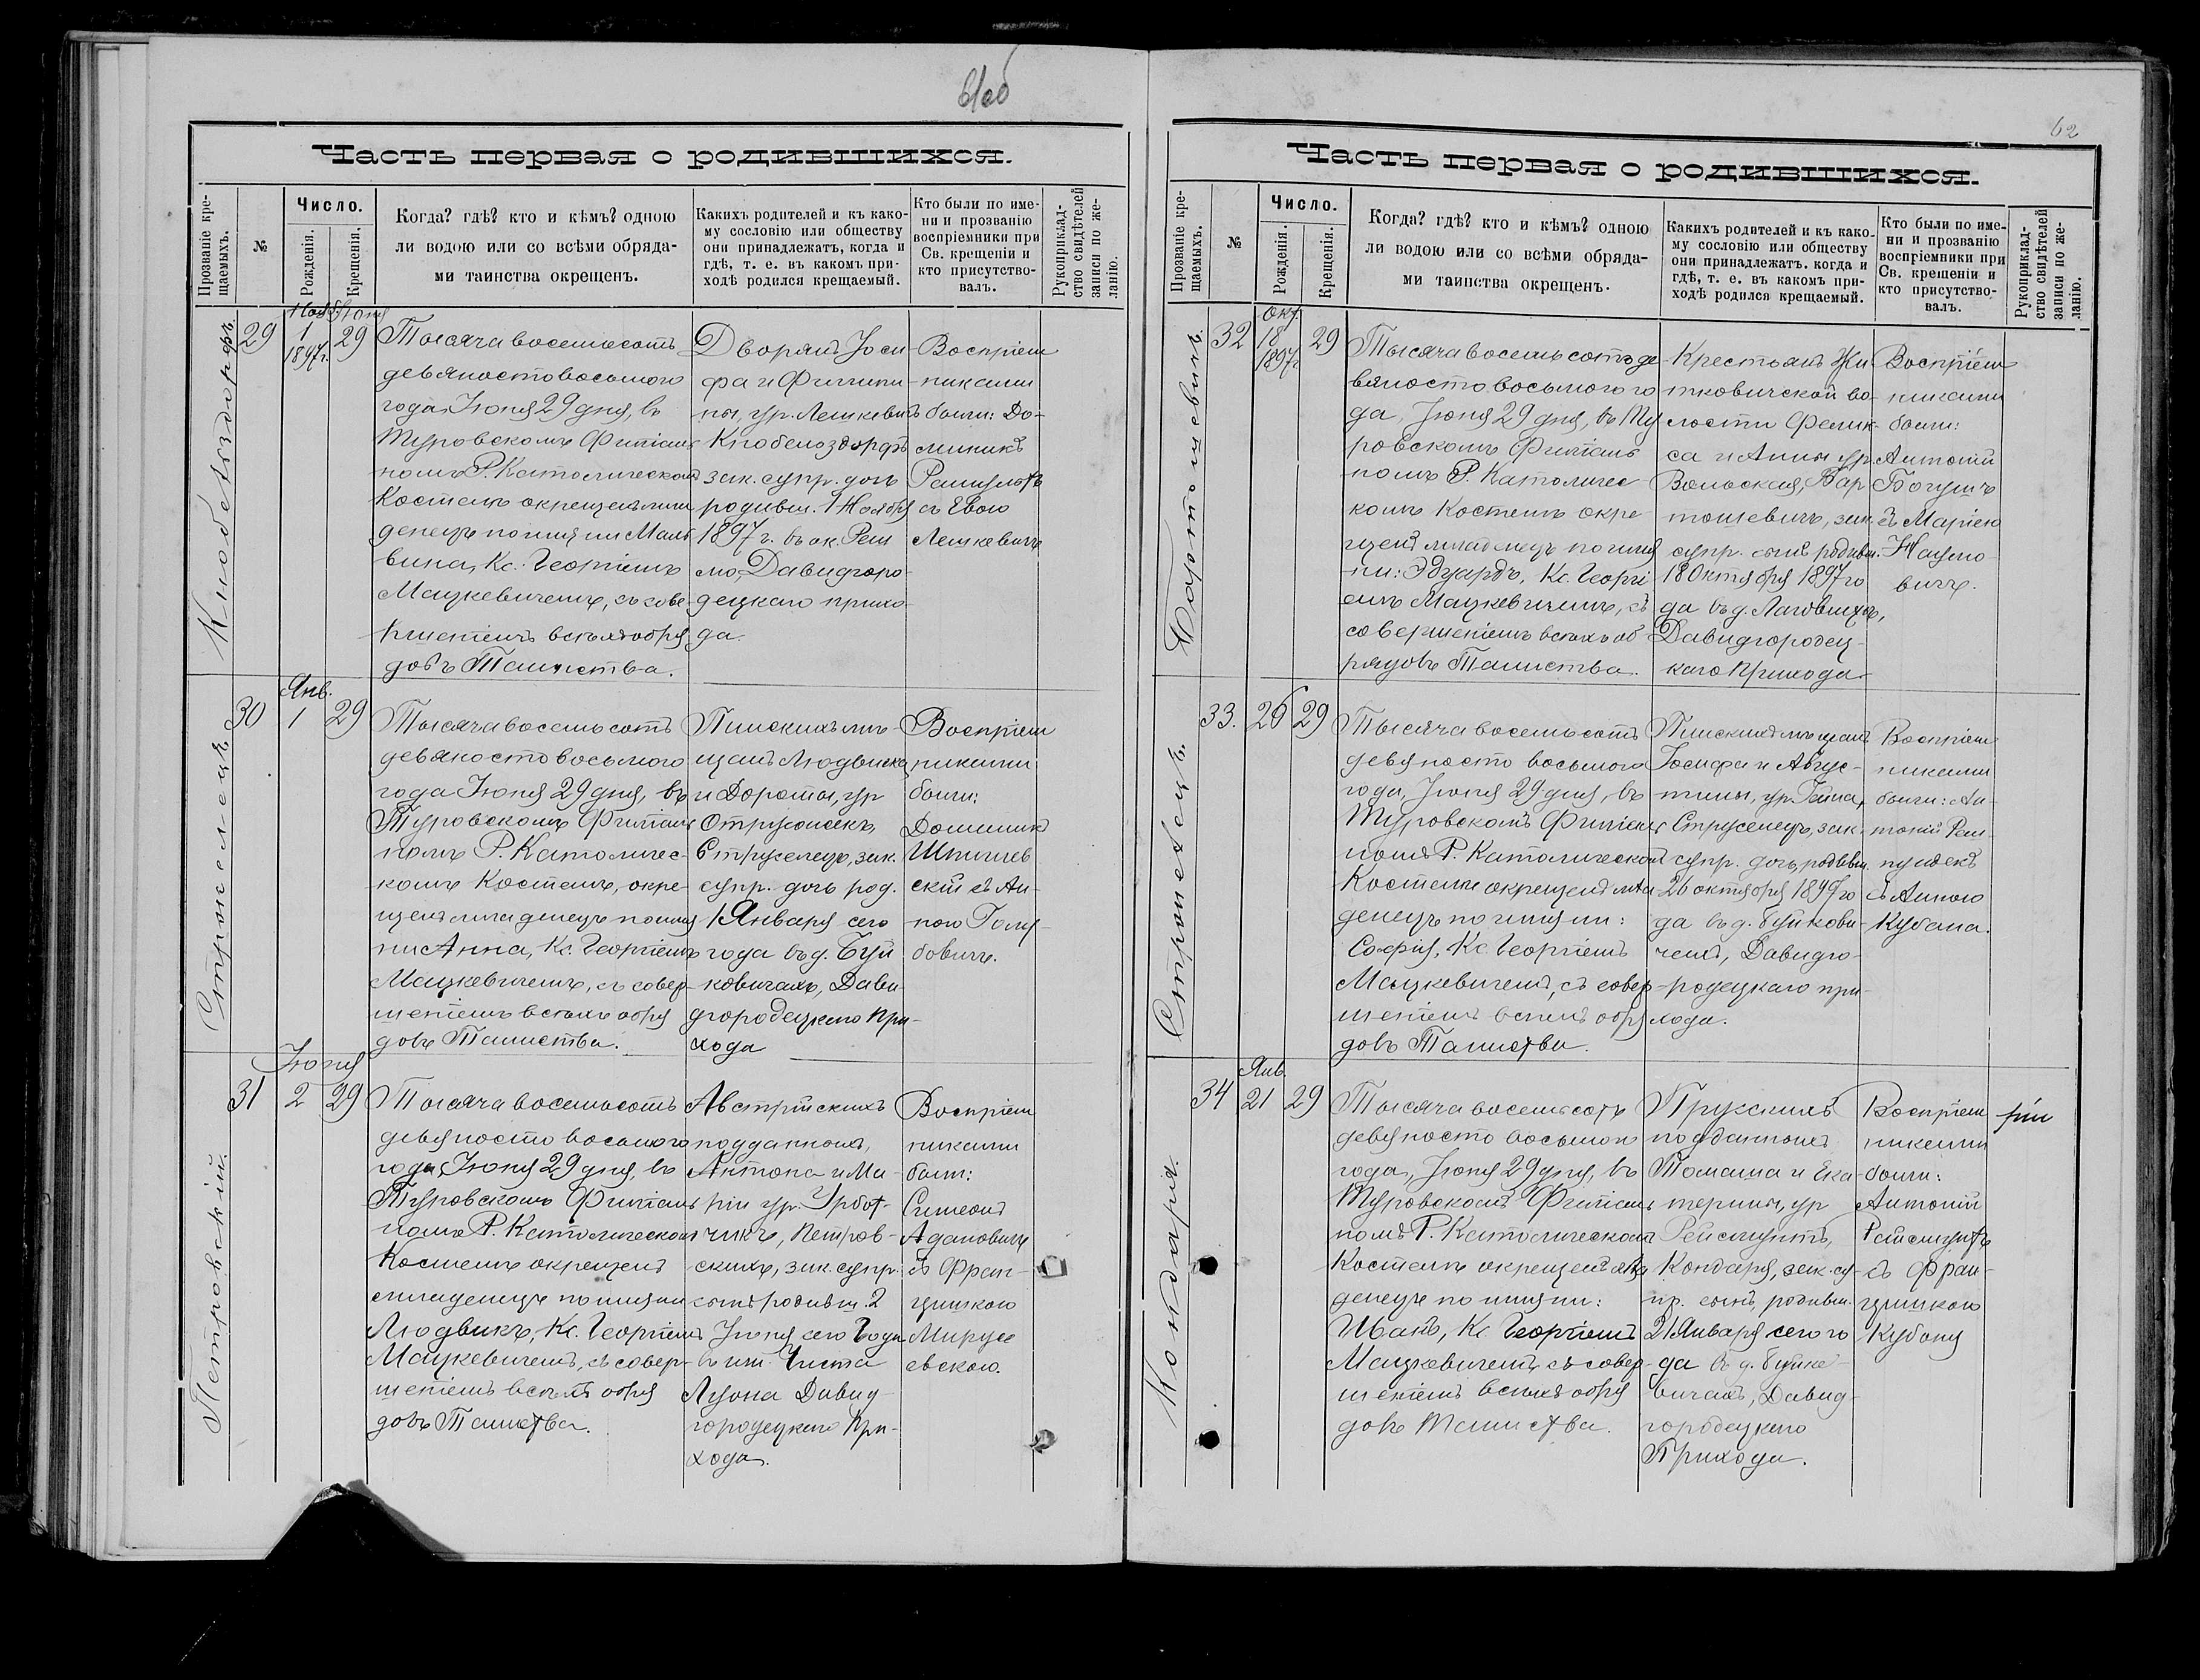 61об
Часть первая о родившихся.
Прозваніе кре-
щаемыхъ.
№
Число.
Рожденія.
Крещенія.
Когда? гдѣ? кто и кѣмъ? одною
ли водою или со всѣми обряда-
ми таинства окрещенъ.
Какихъ родителей и къ како-
му сословію или обществу
они принадлежатъ, когда и
гдѣ, т. е. въ какомъ при-
ходѣ родился крещаемый.
Кто были по име-
ни и прозванію
воспріемники при
Св. крещеніи и
кто присутство-
валъ.
Рукоприклад-
ство свидѣтелей
записи по же-
ланію.
29
1
1897г.
Іюня
29
Тысяча восемьсотъ
девяносто восьмого
года, Іюня 29 дня, въ
Туровскомъ Филіаль
номъ Р. Католическом
Костелѣ окрещенъ мла
денецъ по имени Маль
вина, Кс. Георгіемъ
Мацкевичемъ, съ сове-
ршеніемъ всѣхъ обря
довъ Таинства.
Дворянъ Іоси
фа и Филипи-
ны, ур. Лешкевичъ
Кнобельздорфъ
зак. супр. дочь
родивш. 1 Ноября
1897 г. въ ок. Реш
мо, Давидгоро-
децкаго прихо-
да.
Воспріем
никами
были: До-
миникъ
съ Евою
Лешкевичъ
Янв.
30
1
29
Стрюсемецъ
Тысяча восемьсотъ
девяносто восьмого
года Іюня 29 дня, въ
Туровскомъ Филіаль
номъ Р. Католичес-
комъ Костелѣ, окре-
щенъ младенецъ по имя
ни Анна, Кс. Георгіемъ
Мацкевичемъ, съ совер-
шеніемъ всѣхъ обря
довъ Таинства.
Пинскихъ мѣ-
щанъ Людвика
и Дороты, ур
зак.
супр. дочь род.
1 Января сего
года въ д. Буй
ковичахъ, Дави
дгородецкаго При-
хода
Воспріем
никами
были:
Доминикъ
скій съ Ан-
ною Голу-
бовичъ.
Іюня
31
2
29
Петровскій.
Тысяча восемьсотъ
девяносто восьмого
года, Іюня 29 дня, въ
Туровскомъ Филіаль
номъ Р. Католическом
Костелѣ окрещенъ
младенецъ по имени
Людвикъ, Кс. Георгіемъ
Мацкевичемъ, съ совер-
шеніемъ всѣхъ обря
довъ Таинства.
Австрійскихъ
подданныхъ,
Антона и Ма-
ріи ур. Урбат-
чикъ, Петров-
скихъ, зак. супр.
сынъ родивш. 2
Іюня сего года
въ им. Чиста
Лужа Давид-
городецкаго При-
хода.
Воспріем
никами
были:
Симеонъ
Адамовичъ
съ Фран-
цишкою
евскою.
62
Часть первая о родившихся.
Прозваніе кре-
щаемыхъ.
№
Число.
Рожденія.
Крещенія.
Когда? гдѣ? кто и кѣмъ? одною
ли водою или со всѣми обряда-
ми таинства окрещенъ.
Какихъ родителей и къ како-
му сословію или обществу
они принадлежатъ, когда и
гдѣ, т. е. въ какомъ при-
ходѣ родился крещаемый.
Кто были по име-
ни и прозванію
воспріемники при
Св. крещеніи и
кто присутство-
валъ.
Рукоприклад-
ство свидѣтелей
записи по же-
ланію.
Окт
32
18
1897г
29
Тысяча восемьсотъ де-
вяносто восьмого го
да, Іюня 29 дня, въ Ту
ровскомъ Филіаль
номъ Р. Католичес-
комъ Костелѣ окре-
щенъ младенецъ по имя
ни: Эдуардъ, Кс. Георгі
емъ Мацкевичемъ, съ
совершеніемъ всѣхъ об
рядовъ Таинства.
Крестьянъ Жи-
тковичской во-
лости Феликъ-
са и Анны ур.
Вольская, Бар
тошевичъ, зак.
супр. сынъ родивш.
18 Октября 1897 го
да въ д. Ляховичахъ,
Давидгородец-
каго Прихода.
Воспріем
никами
были:
Антоній
Богушъ
съ Маріею
Наумо
вичъ.
33.
26
29
Тысяча восемьсотъ
девяносто восьмого
года, Іюня 29 дня, въ
Туровскомъ Филіаль
номъ Р. Католическом
Костелѣ окрещенъ мла
денецъ по имяни:
Софія, Кс. Георгіемъ
Мацкевичемъ, съ совер-
шеніемъ всѣхъ обря
довъ Таинства.
Пинскихъ мѣщанъ
Іосифа и Авгус-
тины, ур. Гейна,
зак.
супр. дочь, родивш.
26 октября 1897 го
да въ д. Буйкови-
чахъ, Давидго-
родецкаго при-
хода.
Воспріем
никами
были: Ан-
тоній
съ Анною
Кубата.
Янв.
34
21
29
Кондаря.
Тысяча восемьсотъ
девяносто восьмого
года, Іюня 29 дня, въ
Туровскомъ Филіаль
номъ Р. Католическомъ
Костелѣ окрещенъ мла
денецъ по имяни:
Иванъ, Кс. Георгіемъ
Мацкевичемъ, съ совер-
шеніемъ всѣхъ обря
довъ Таинства.
Прусскихъ
подданныхъ
Томаша и Ека-
терины, ур
Рейсмунтъ,
Кондаря, зак. су-
пр. сынъ, родивш.
21 Января сего го
да въ д. Буйко-
вичахъ, Давид-
городецкаго
Прихода.
Воспріем
никами
были:
Антоній
Рейсмунтъ
съ Фран-
цишкою
Кубаня